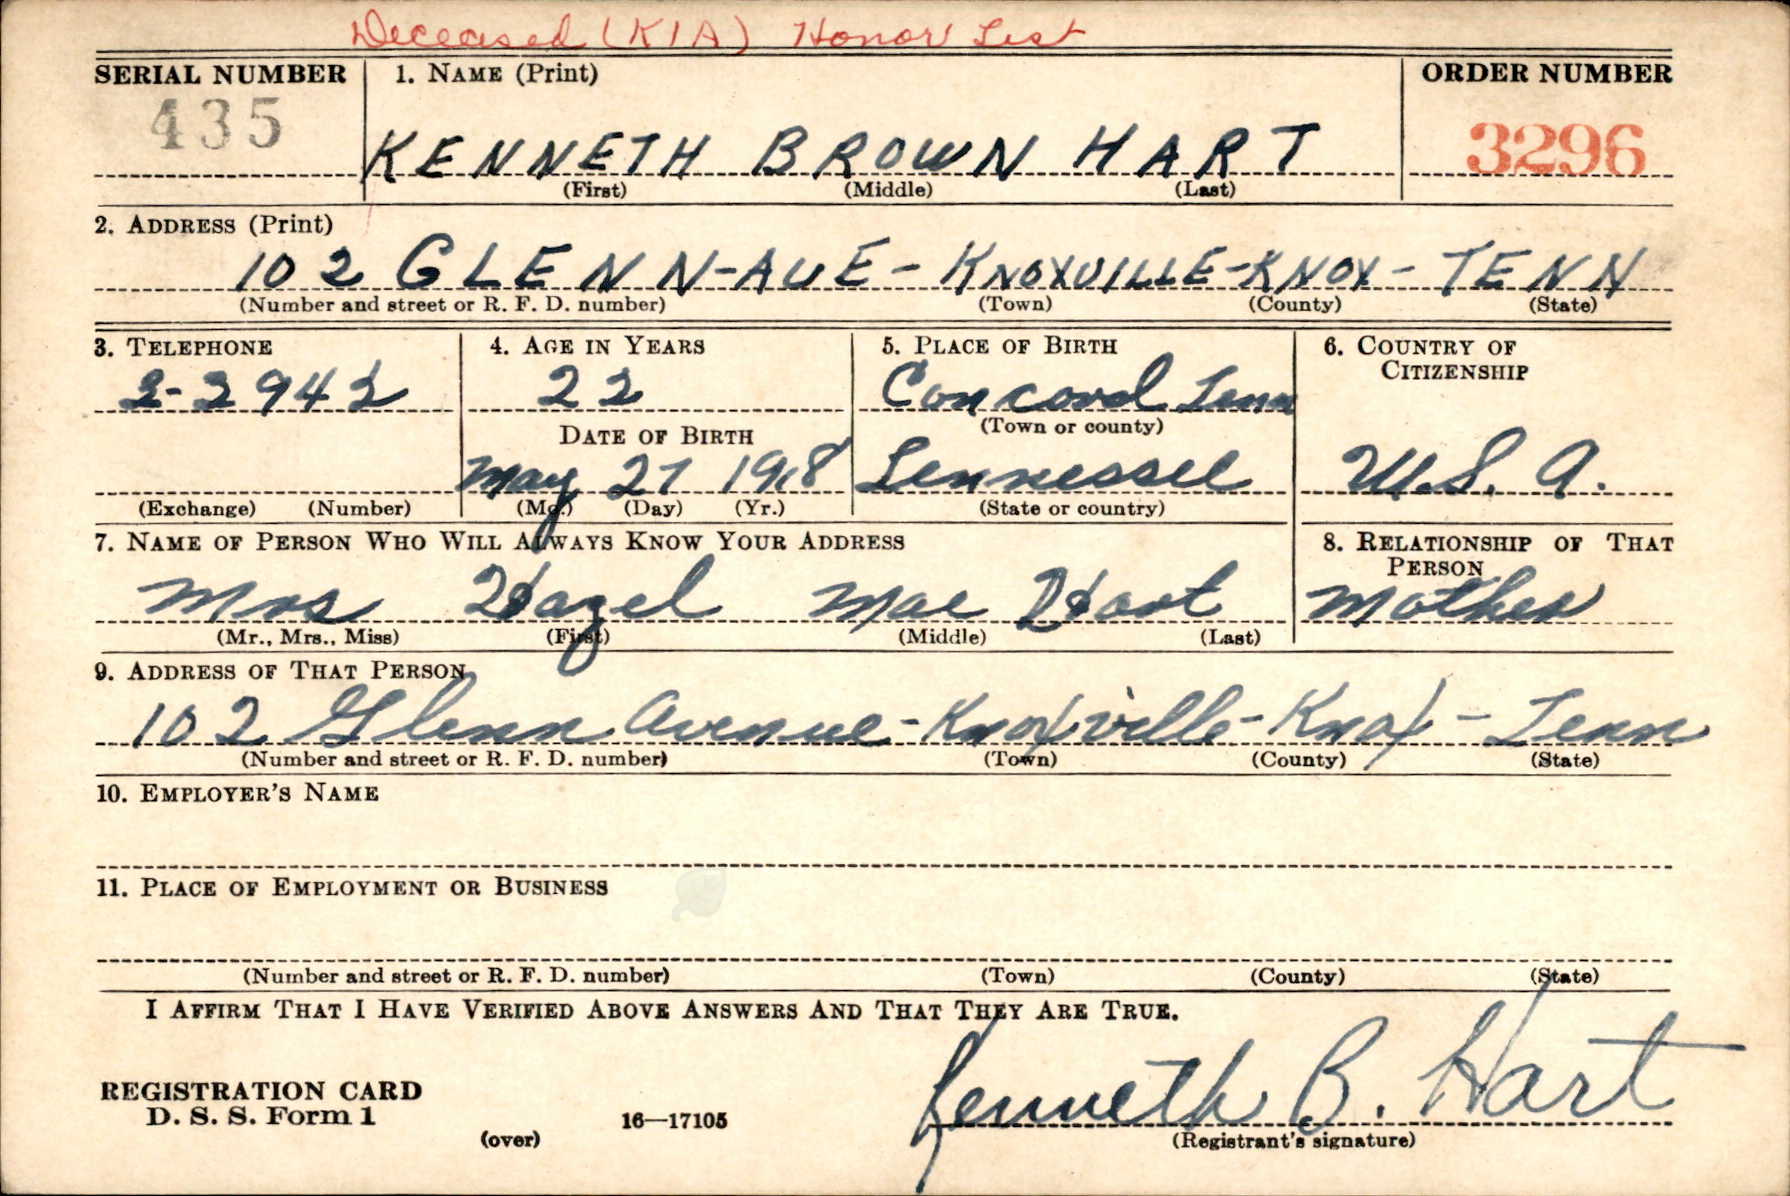 Deceased (KIA) Honor List
SERIAL NUMBER 1. NAME (Print) ORDER NUMBER
435 KENNETH BROWN HART 3296
(First) (Middle) (Last)
2. ADDRESS (Print)
102 GLENN-AVE-KNOXVILLE-KNOX-TENN
(Number and street or R. F. D. number) (Town) (County) (State)
3. TELEPHONE 4. AGE IN YEARS 5. PLACE OF BIRTH 6. COUNTRY OF CITIZENSHIP
2-2942 22 Concord Tenn
(Town or county)
DATE OF BIRTH
May 27 1918 Tennessee U.S.A.
(Exchange) (Number) (Mo.) (Day) (Yr.) (State or country)
7. NAME OF PERSON WHO WILL ALWAYS KNOW YOUR ADDRESS 8. RELATIONSHIP OF THAT PERSON
Mrs Hazel Mae Hart Mother
(Mr., Mrs., Miss) (First) (Middle) (Last)
9. ADDRESS OF THAT PERSON
102 Glenn Avenue-Knoxville-Knox-Tenn
(Number and street or R. F. D. number) (Town) (County) (State)
10. EMPLOYER'S NAME
11. PLACE OF EMPLOYMENT OR BUSINESS
(Number and street or R. F. D. number) (Town) (County) (State)
I AFFIRM THAT I HAVE VERIFIED ABOVE ANSWERS AND THAT THEY ARE TRUE.
REGISTRATION CARD
D. S. S. Form 1
(over) 16—17105
Kenneth B. Hart
(Registrant's signature)